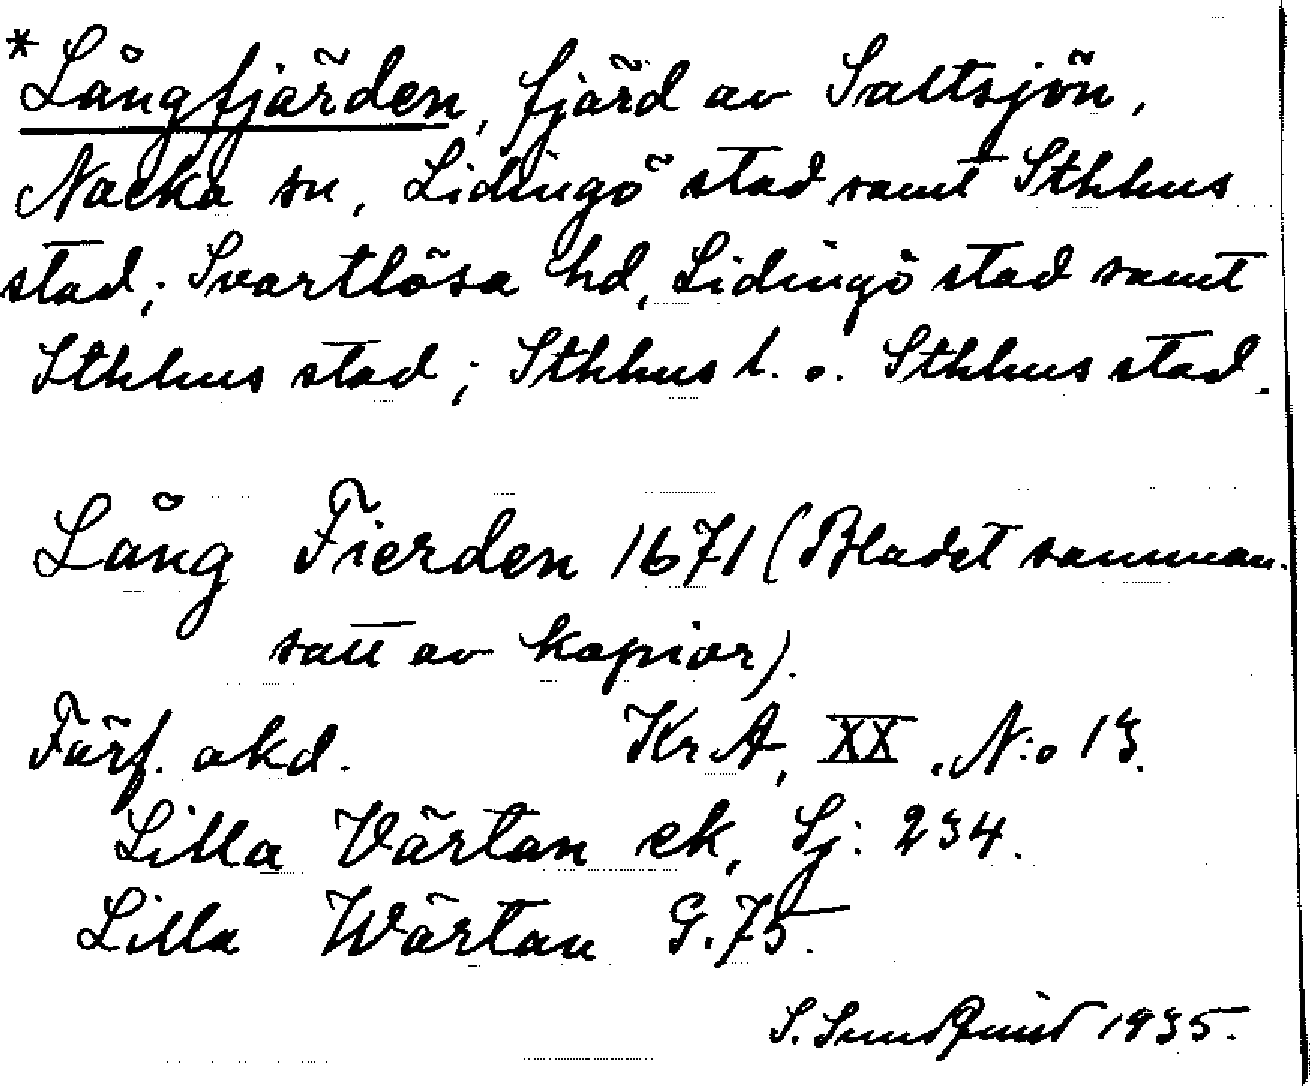 *Långfjärden, fjärd av Saltsjön,
Nacka sn, Lidingö stad samt Sthlms
stad; Svartlösa hd, Lidingö stad samt
Sthlms stad; Sthlms l. o. Sthlms stad.
Lång Fierden 1671 (Bladet samman-
satt av kopior).
Förf. okd. Kr.A, XX. N:o 13.
Lilla Värtan ek, Sj: 234.
Lilla Wärtan G.75.
S. Sundquist 1935.